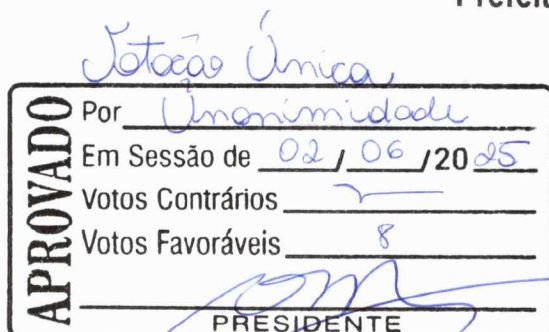 Prefeit
Votação Única
APROVADO
Por Unanimidade
Em Sessão de 02 / 06 / 20 25
Votos Contrários —
Votos Favoráveis 8
PRESIDENTE